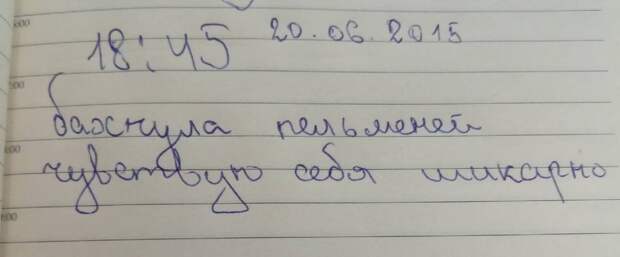 18:45 20.06.2015
бахнула пельменей
чувствую себя шикарно